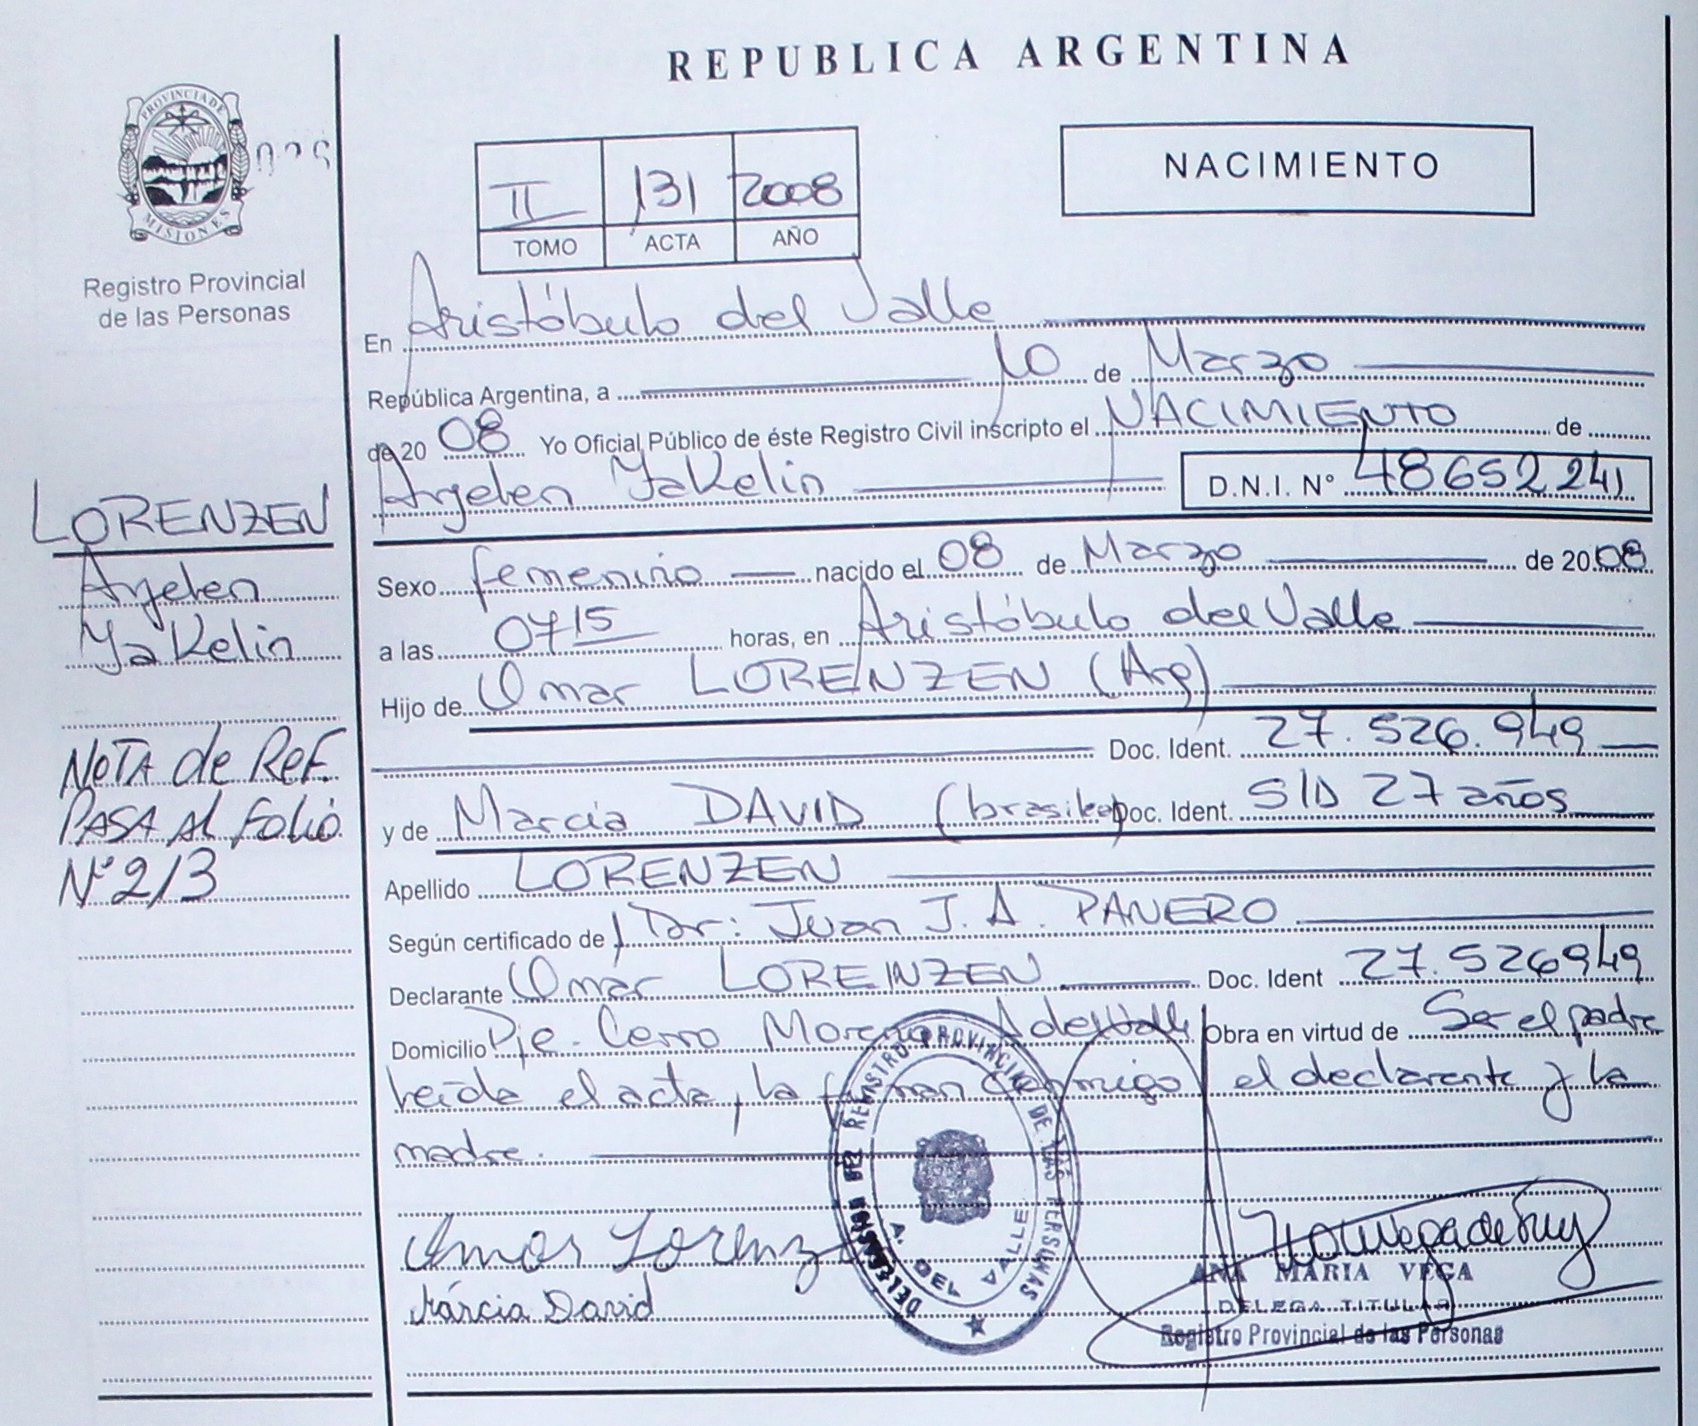 REPUBLICA ARGENTINA
PROVINCIA DE
MISIONES
Registro Provincial
de las Personas
NACIMIENTO
II 131 2008
TOMO ACTA AÑO
En Aristóbulo del Valle
República Argentina, a 10 de Marzo
de 20 08 Yo Oficial Público de éste Registro Civil inscripto el NACIMIENTO de
Ayelen Yakelin D.N.I. N° 48652241
LORENZEN
Ayelen
Yakelin
Sexo femenino nacido el 08 de Marzo de 2008
a las 0715 horas, en Aristóbulo del Valle
Hijo de Omar LORENZEN (Arg)
Doc. Ident. 27.526.949
y de Marcia DAVID (brasileña Doc. Ident. S/D 27 años
Apellido LORENZEN
Según certificado de Dr: Juan J. A. PANERO
Declarante Omar LORENZEN Doc. Ident 27.526949
Domicilio Pje. Cerro Moreno A del Valle Obra en virtud de Ser el padre
leída el acta, la firman conmigo el declarante y la
madre.
NOTA de REF.
PASA Al Folio
N° 213
Omar Lorenz
Márcia David
DELEGACION DEL REGISTRO PROVINCIAL DE LAS PERSONAS
A. DEL VALLE
ANA MARIA VEGA
DELEGA TITULAR
Registro Provincial de las Personas